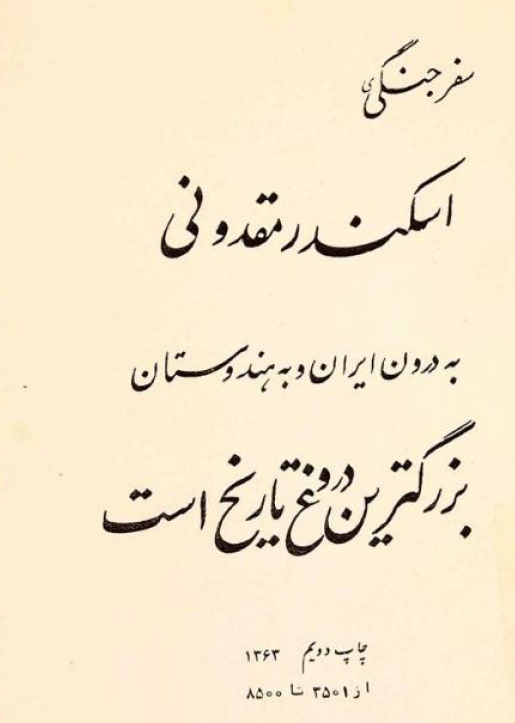 سفر جنگی
اسکندر مقدونی
به درون ایران و به هندوستان
بزرگترین دروغ تاریخ است
چاپ دویم ۱۳۶۳
از ۳۵۰۱ تا ۸۵۰۰